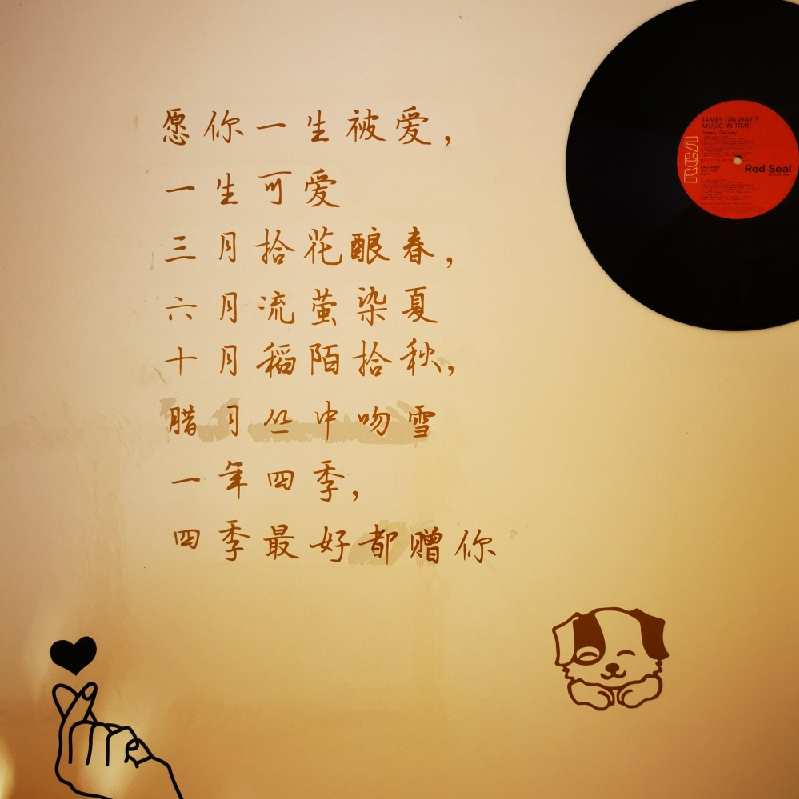 愿你一生被爱,
一生可爱
三月拾花酿春,
六月流萤染夏
十月稻陌拾秋,
腊月丛中吻雪
一年四季,
四季最好都赠你
RCA
Red Seal